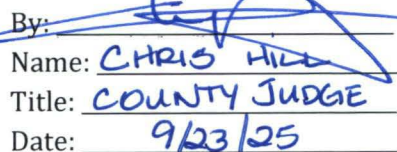 By:
Name: CHRIS HILL
Title: COUNTY JUDGE
Date: 9/23/25